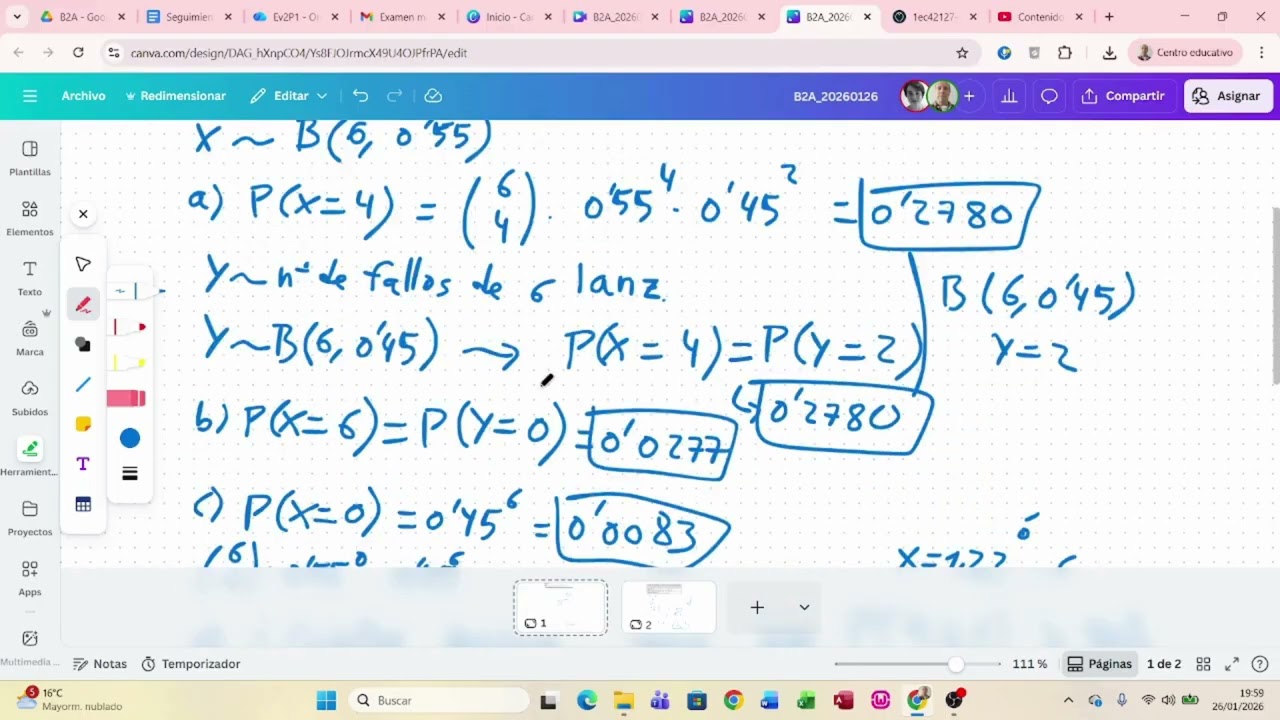 B2A - Goo
Seguimien
Ev2P1 - Or
Examen m
Inicio - Ca
B2A_20260
B2A_2026
B2A_202
1ec42127
Contenido
canva.com/design/DAG_hXnpCO4/Ys8FJOJrmcX49U4OJPfrPA/edit
Centro educativo
Archivo
Redimensionar
Editar
B2A_20260126
Compartir
Asignar
Plantillas
Elementos
Texto
Marca
Subidos
Herramient...
Proyectos
Apps
Multimedia ...
X ~ B(6, 0'55)
a) P(X=4) = (6 4) · 0'55^4 · 0'45^2 = 0'2780
Y ~ nº de fallos de 6 lanz.
B(6, 0'45)
Y ~ B(6, 0'45) → P(X = 4) = P(Y = 2)
Y = 2
0'2780
b) P(X=6) = P(Y=0) = 0'0277
c) P(X=0) = 0'45^6 = 0'0083
1
2
Notas
Temporizador
111 %
Páginas
1 de 2
5
16°C
Mayorm. nublado
Buscar
19:59
26/01/2026